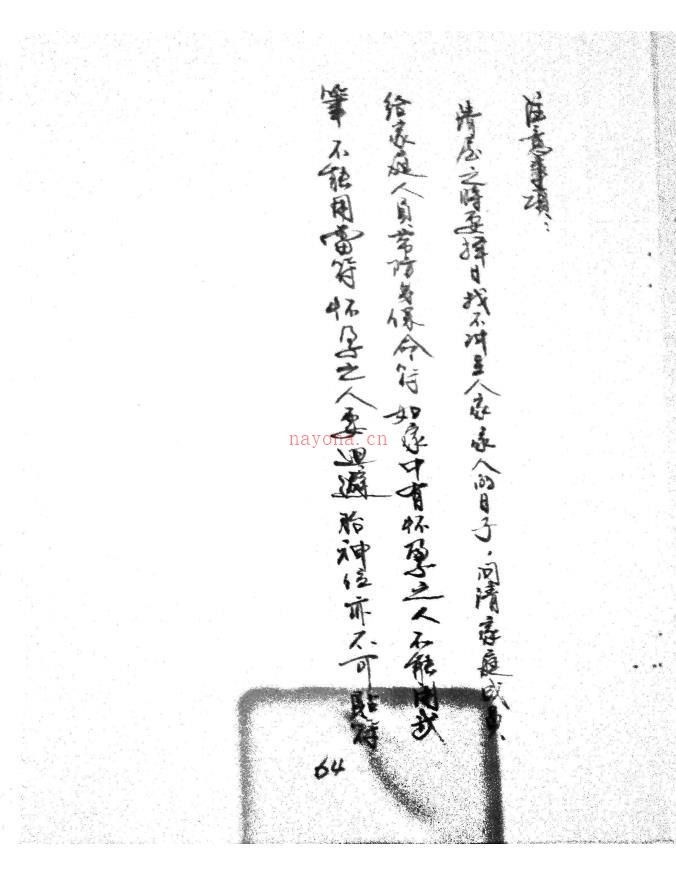 注意事項：
清屋之時要擇日找不冲主人家家人的日子，问清家庭成员、
给家庭人員带防身保命符 如家中有怀孕之人不能開
筆 不能用當符 怀孕之人要迴避 胎神位亦不可貼符
64
nayona.cn